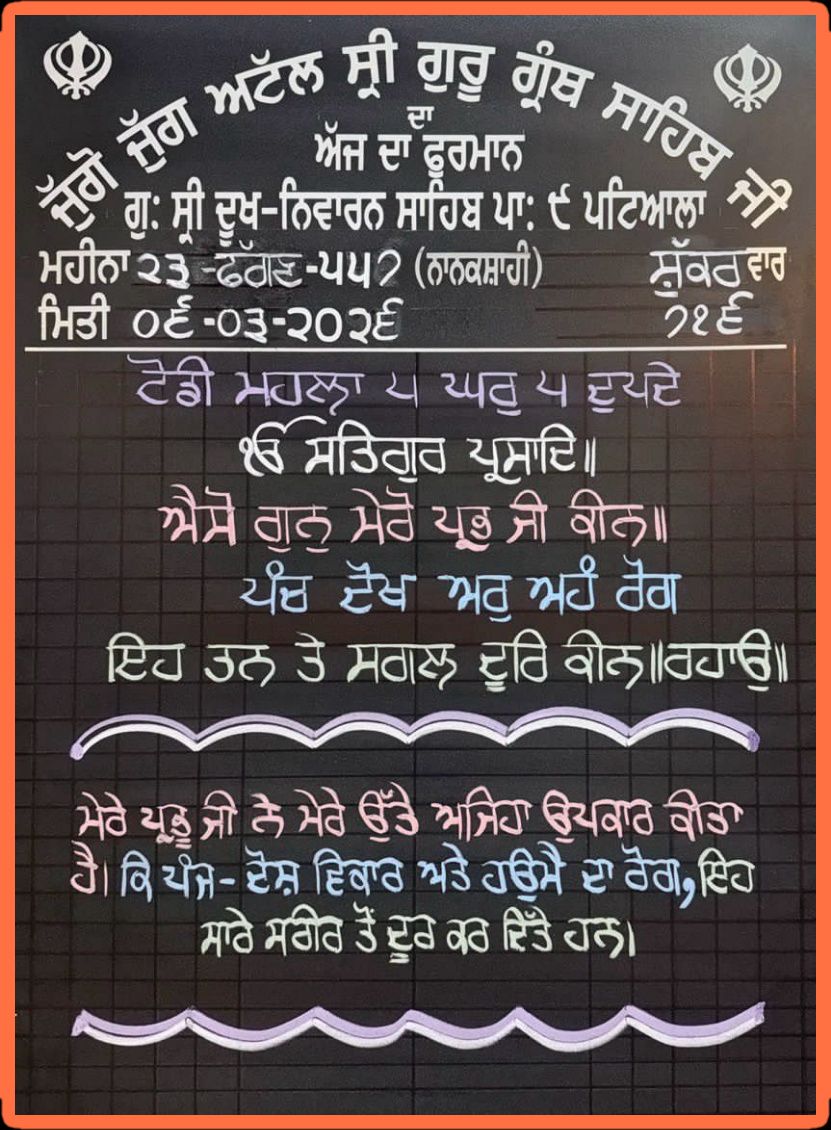 ਜੁੱਗੋ ਜੁੱਗ ਅਟੱਲ ਸ੍ਰੀ ਗੁਰੂ ਗ੍ਰੰਥ ਸਾਹਿਬ ਜੀ
ਦਾ
ਅੱਜ ਦਾ ਫੂਰਮਾਨ
ਗੁ: ਸ੍ਰੀ ਦੂਖ-ਨਿਵਾਰਨ ਸਾਹਿਬ ਪਾ: ੯ ਪਟਿਆਲਾ
ਮਹੀਨਾ ੨੩ -ਫੱਗਣ -੫੫੭ (ਨਾਨਕਸ਼ਾਹੀ) ਸ਼ੁੱਕਰ ਵਾਰ
ਮਿਤੀ ੦੬-੦੩-੨੦੨੬ ੭੧੬
ਟੋਡੀ ਮਹਲਾ ੫ ਘਰੁ ੫ ਦੁਪਦੇ
ੴ ਸਤਿਗੁਰ ਪ੍ਰਸਾਦਿ॥
ਐਸੋ ਗੁਨੁ ਮੇਰੋ ਪ੍ਰਭ ਜੀ ਕੀਨ॥
ਪੰਚ ਦੋਖ ਅਰੁ ਅਹੰ ਰੋਗ
ਇਹ ਤਨ ਤੇ ਸਗਲ ਦੂਰਿ ਕੀਨ॥ਰਹਾਉ॥
ਮੇਰੇ ਪ੍ਰਭੂ ਜੀ ਨੇ ਮੇਰੇ ਉੱਤੇ ਅਜਿਹਾ ਉਪਕਾਰ ਕੀਤਾ
ਹੈ। ਕਿ ਪੰਜ- ਦੋਸ਼ ਵਿਕਾਰ ਅਤੇ ਹਉਮੈ ਦਾ ਰੋਗ, ਇਹ
ਸਾਰੇ ਸਰੀਰ ਤੋਂ ਦੂਰ ਕਰ ਦਿੱਤੇ ਹਨ।